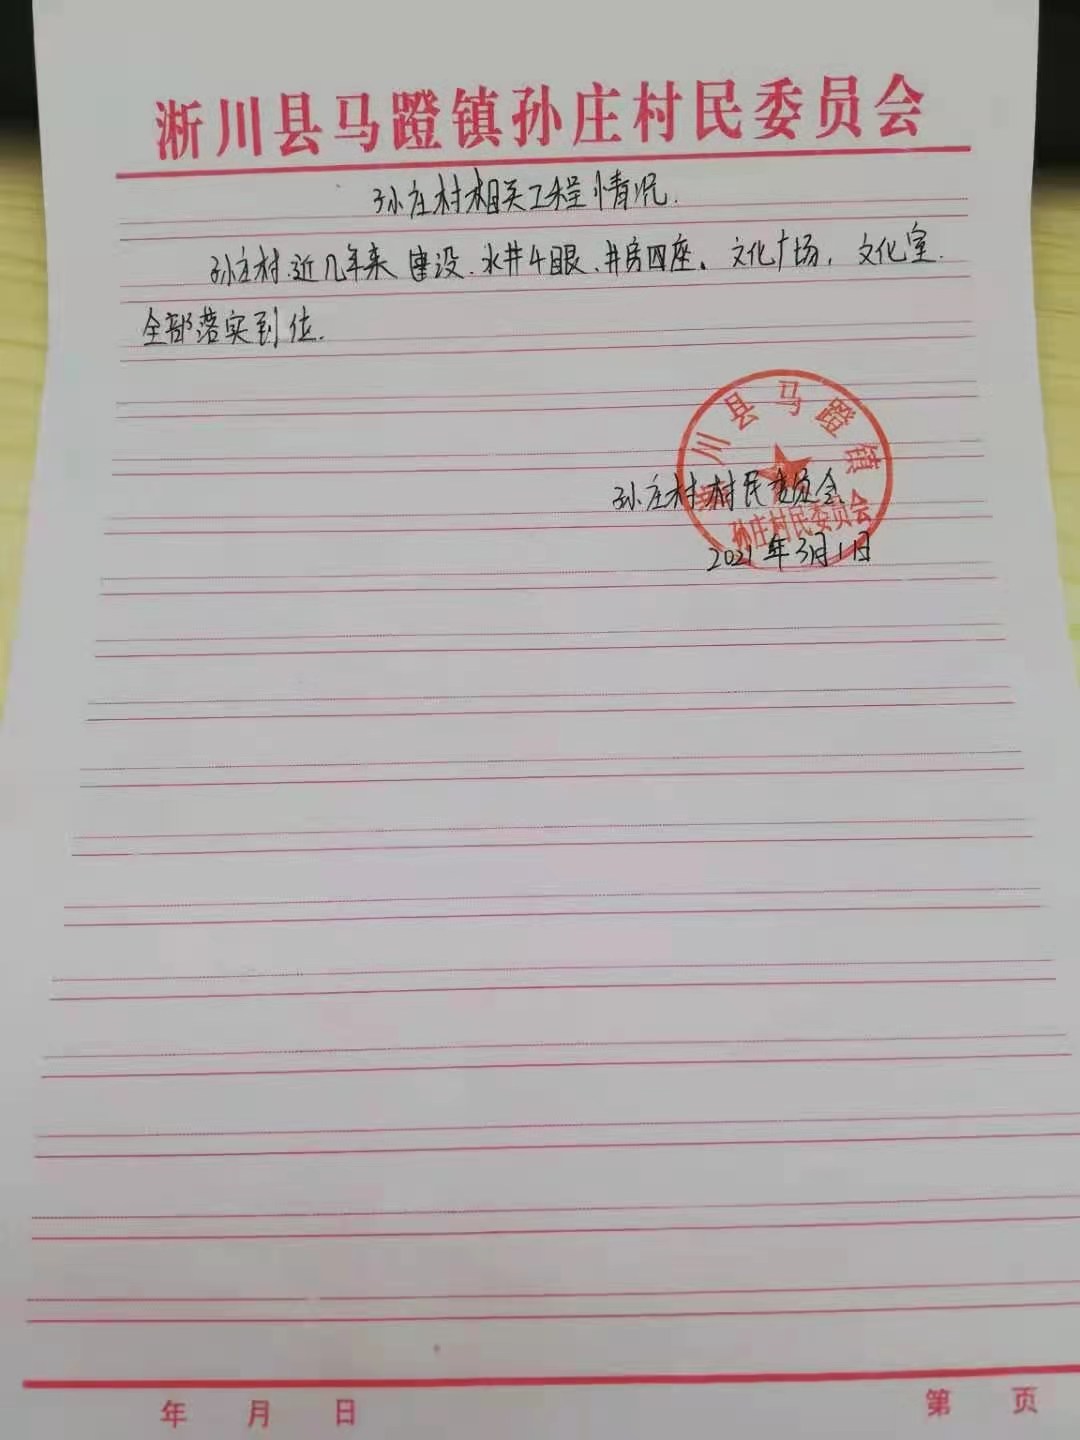 淅川县马蹬镇孙庄村民委员会
孙庄村相关工程情况.
孙庄村近几年来建设.水井4眼、井房四座。文化广场,文化室.
全部落实到位.
淅川县马蹬镇
孙庄村村民委员会
孙庄村民委员会
2021年3月1日
年 月 日
第 页